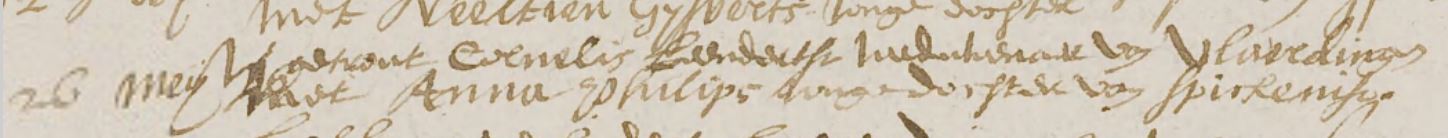 met Neeltien Gijsberts Jonge dochter
26 Meij Is getrout Cornelis Leendertse weduwenaer van Vlaerdinge
met Anna Philips Jonge dochter van Spickenisse